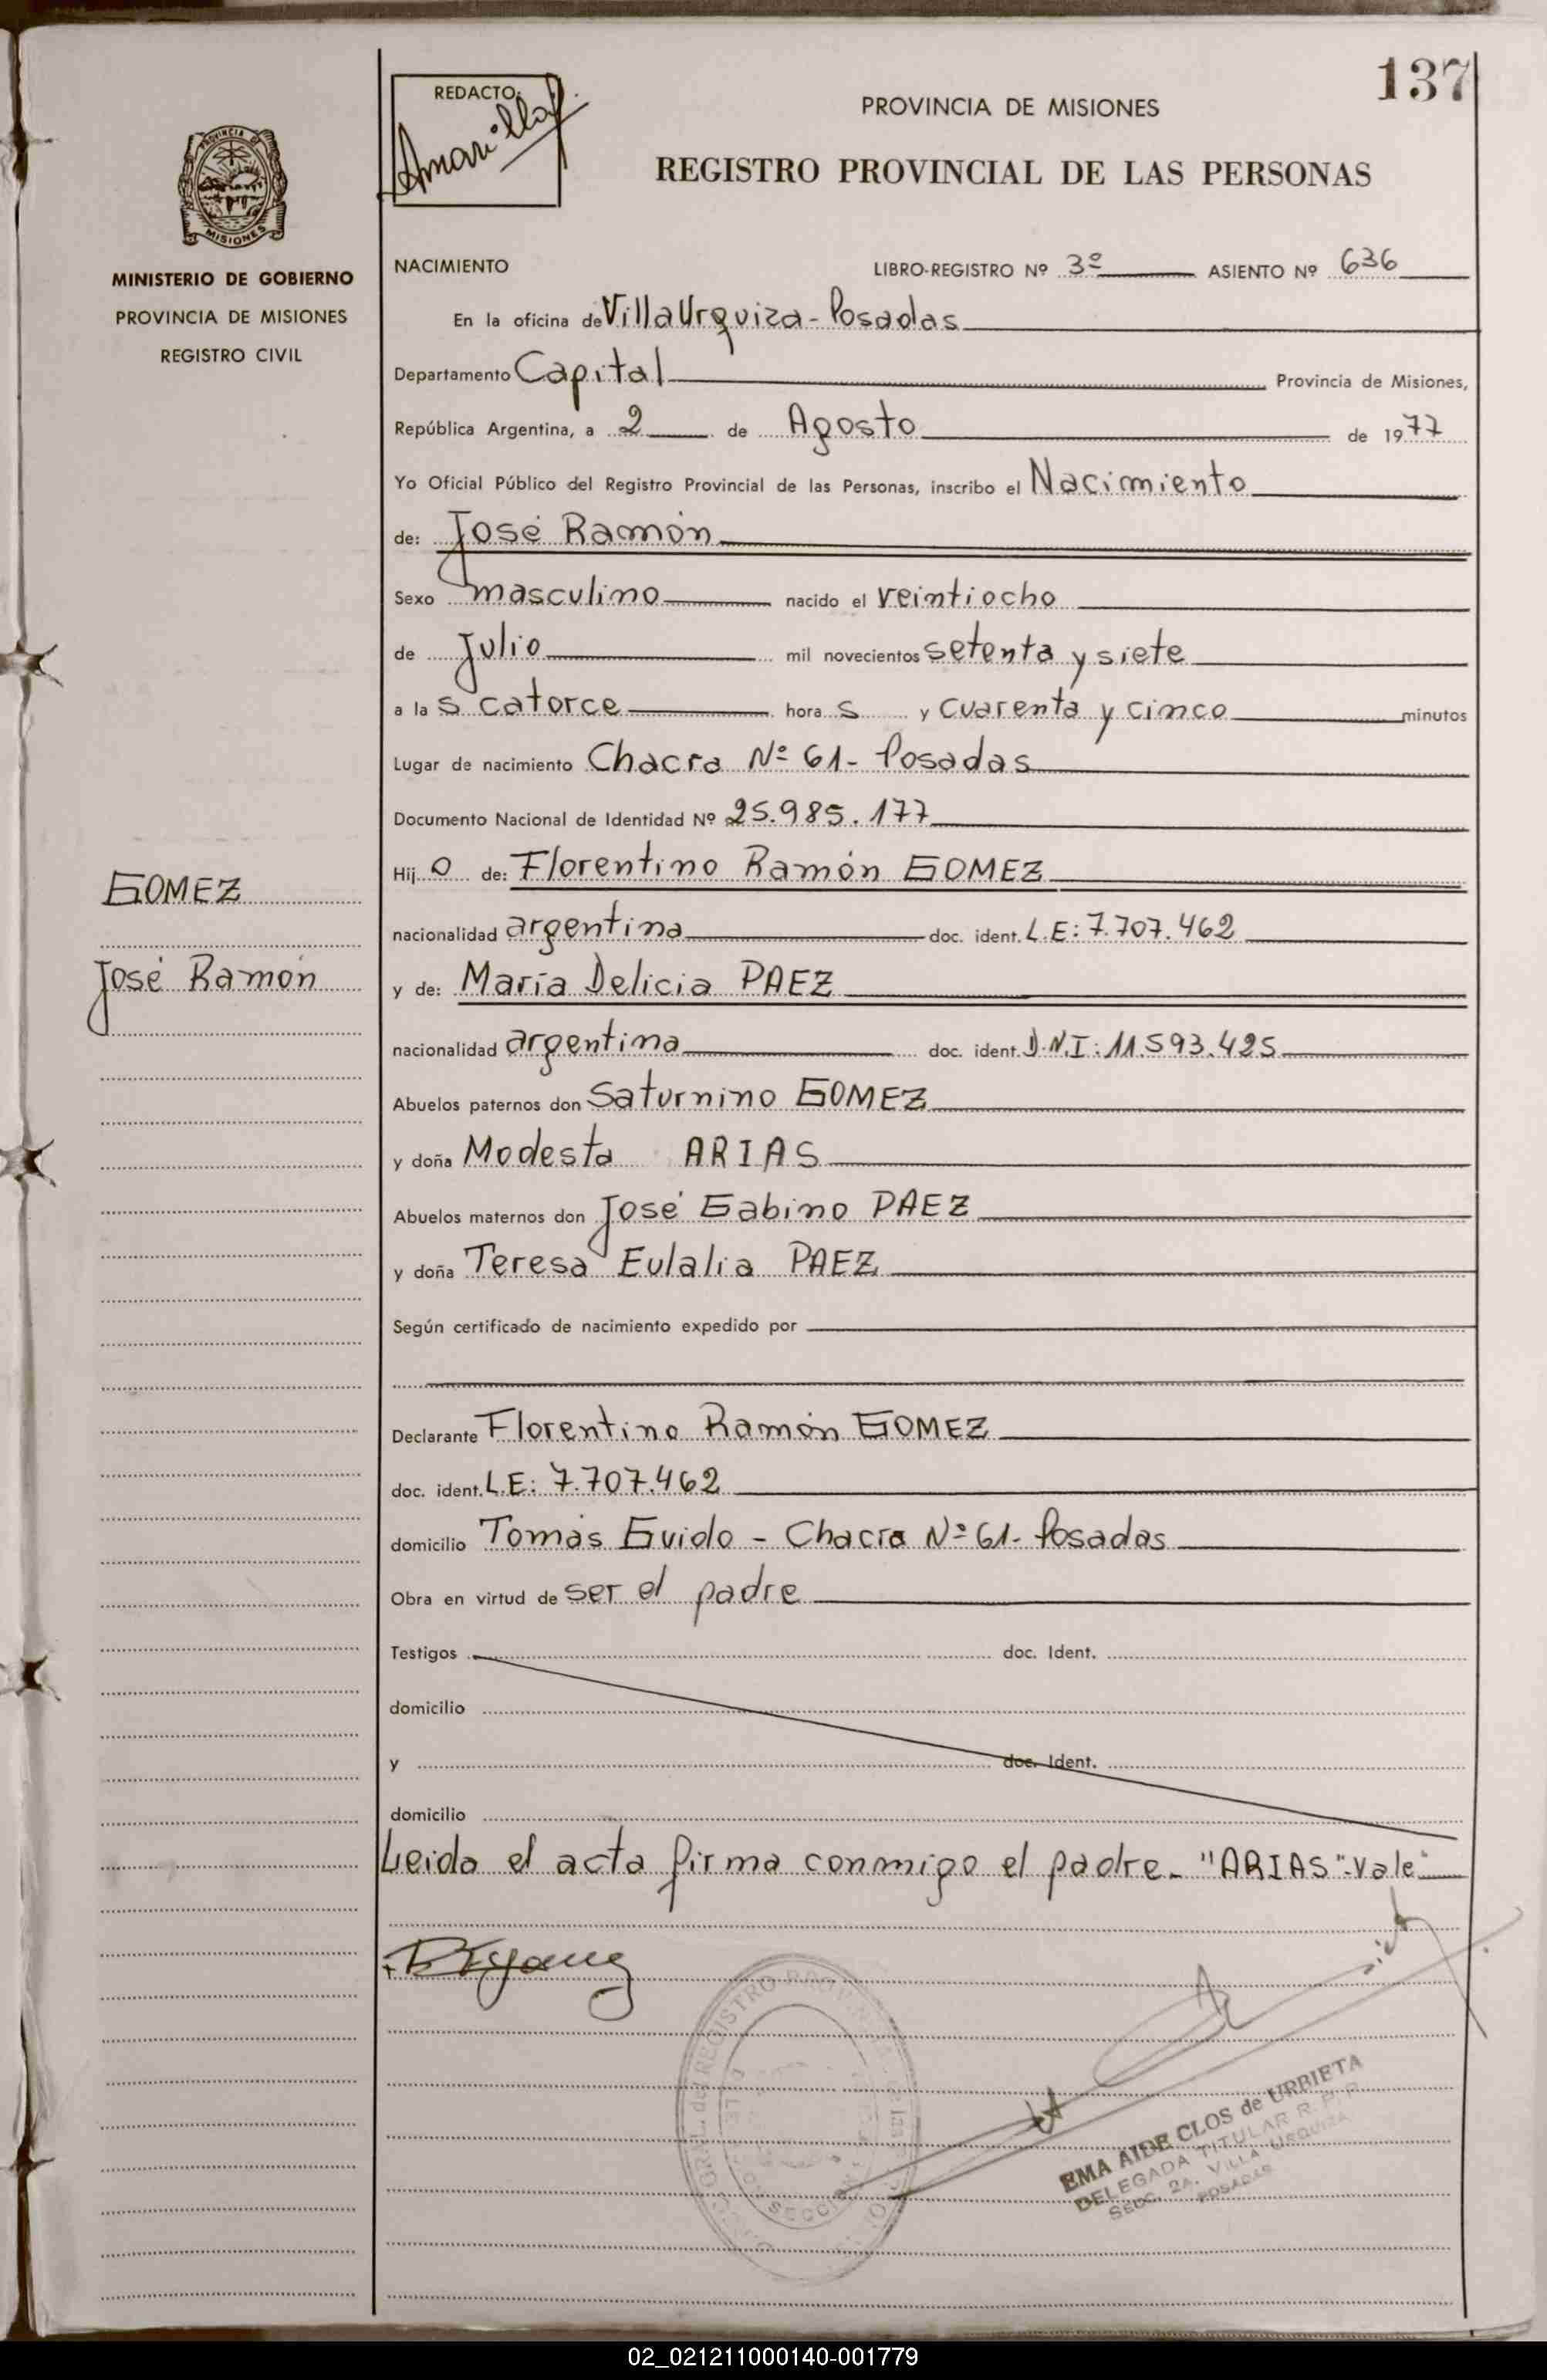 137
REDACTO:
Amarilla
PROVINCIA DE MISIONES
REGISTRO PROVINCIAL DE LAS PERSONAS
PROVINCIA DE
MISIONES
MINISTERIO DE GOBIERNO
PROVINCIA DE MISIONES
REGISTRO CIVIL
GOMEZ
José Ramón
NACIMIENTO LIBRO-REGISTRO Nº 3º ASIENTO Nº 636
En la oficina de Villa Urquiza - Posadas
Departamento Capital Provincia de Misiones,
República Argentina, a 2 de Agosto de 1977
Yo Oficial Público del Registro Provincial de las Personas, inscribo el Nacimiento
de: José Ramón
Sexo masculino nacido el veintiocho
de Julio mil novecientos setenta y siete
a las catorce horas y cuarenta y cinco minutos
Lugar de nacimiento Chacra Nº 61 - Posadas
Documento Nacional de Identidad Nº 25.985.177
Hijo de: Florentino Ramón GOMEZ
nacionalidad argentina doc. ident. L.E: 7.707.462
y de: María Delicia PAEZ
nacionalidad argentina doc. ident. D.N.I: 11.593.425
Abuelos paternos don Saturnino GOMEZ
y doña Modesta ARIAS
Abuelos maternos don José Gabino PAEZ
y doña Teresa Eulalia PAEZ
Según certificado de nacimiento expedido por
Declarante Florentino Ramón GOMEZ
doc. ident. L.E: 7.707.462
domicilio Tomás Guido - Chacra Nº 61 - Posadas
Obra en virtud de ser el padre
Testigos doc. Ident.
domicilio
y doc. Ident.
domicilio
Leida el acta firma conmigo el padre. "ARIAS"-Vale"
EMA AIDE CLOS de URRIETA
DELEGADA TITULAR R. P. P.
SECC. 2A. VILLA URQUIZA
POSADAS
02_021211000140-001779